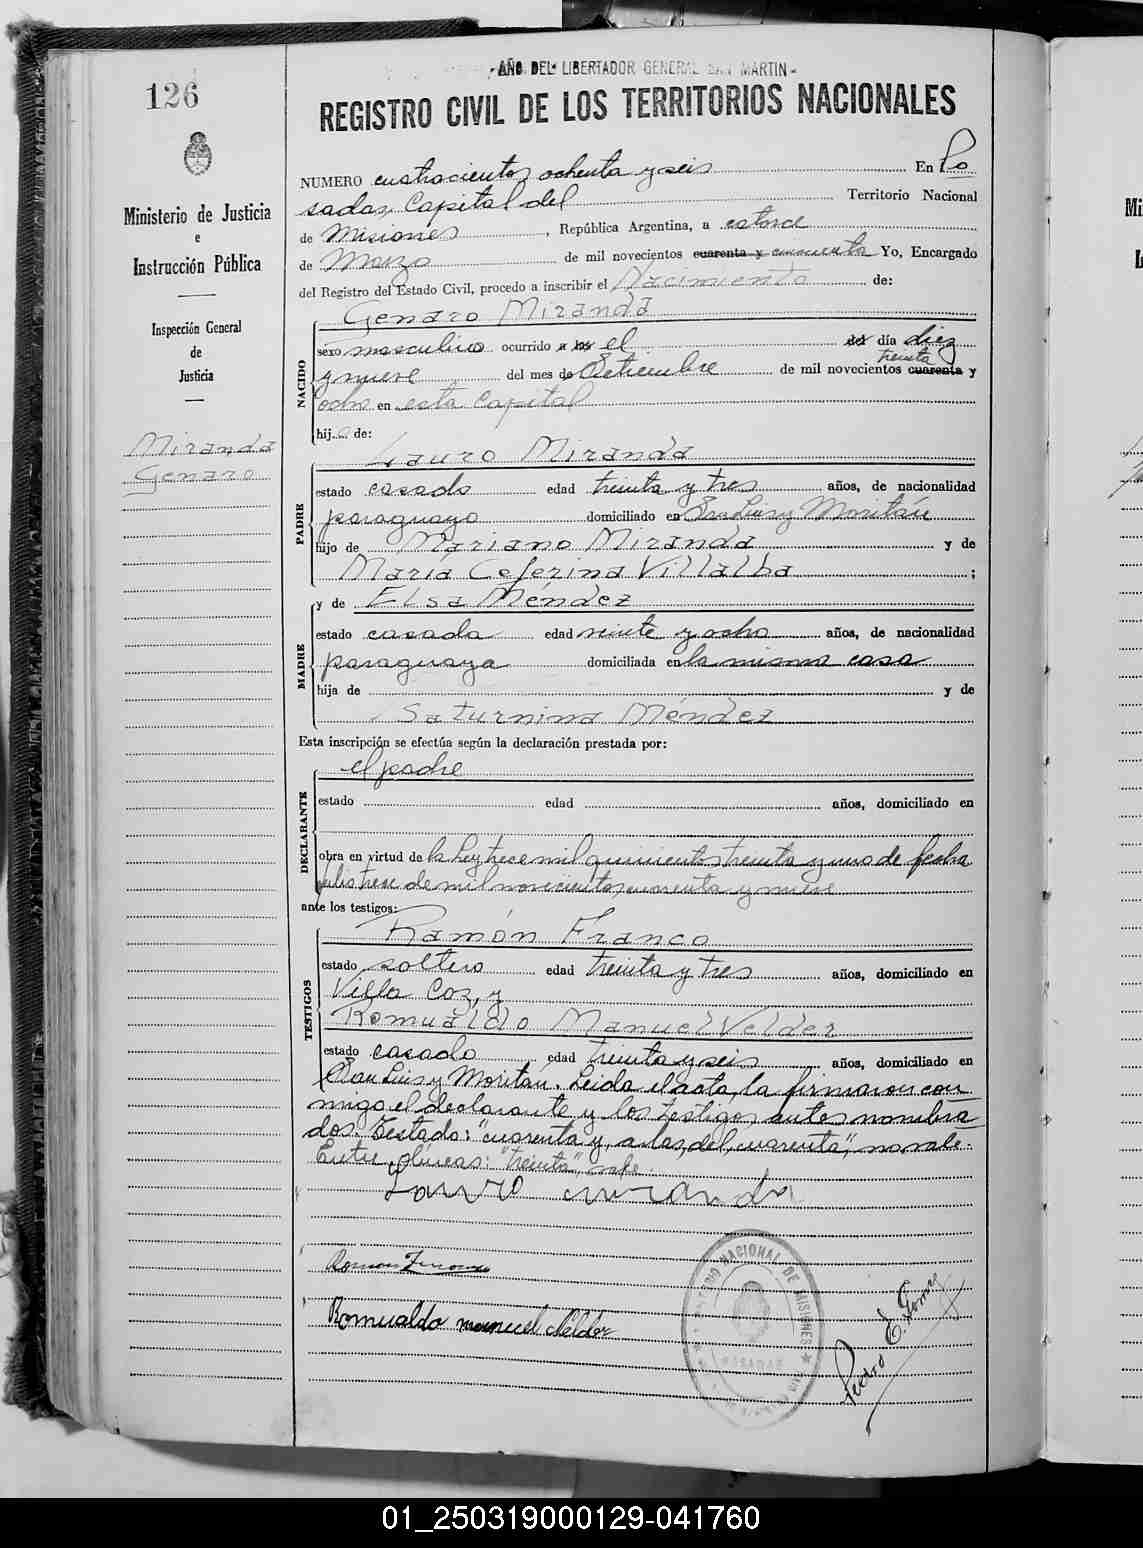 - AÑO DEL LIBERTADOR GENERAL SAN MARTIN -
126
REGISTRO CIVIL DE LOS TERRITORIOS NACIONALES
Ministerio de Justicia
e
Instrucción Pública
Inspección General
de
Justicia
Miranda
Genaro
NUMERO cuatrocientos ochenta y seis En Po
sadas, Capital del Territorio Nacional
de Misiones, República Argentina, a catorce
de Marzo de mil novecientos cuarenta y cincuenta Yo, Encargado
del Registro del Estado Civil, procedo a inscribir el Nacimiento de:
Genaro Miranda
NACIDO
sexo masculino ocurrido a las el del día diez
y nueve del mes de Setiembre de mil novecientos cuarenta y
treinta
ocho en esta Capital
hijo de:
Lauro Miranda
PADRE
estado casado edad treinta y tres años, de nacionalidad
paraguayo domiciliado en San Luis y Moritán
hijo de Mariano Miranda y de
María Ceferina Villalba ;
y de Elsa Méndez
MADRE
estado casada edad veinte y ocho años, de nacionalidad
paraguaya domiciliada en la misma casa
hija de y de
Saturnina Méndez
Esta inscripción se efectúa según la declaración prestada por:
el padre
DECLARANTE
estado edad años, domiciliado en
obra en virtud de la ley trece mil quinientos treinta y uno de fecha
julio trece de mil novecientos cuarenta y nueve
ante los testigos:
Ramón Franco
TESTIGOS
estado soltero edad treinta y tres años, domiciliado en
Villa Coz, y
Romualdo Manuel Velder
estado casado edad treinta y seis años, domiciliado en
San Luis y Moritán. Leida el acta, la firmaron con
migo el declarante y los testigos antes nombra
dos. Testado: "cuarenta y, a las, del, cuarenta", no vale.
Entre líneas: "treinta", vale.
Lauro Miranda
Ramon Franco
Romualdo manuel Velder
Pedro E. Gomez
NACIONAL DE MISIONES
POSADAS
01_250319000129-041760